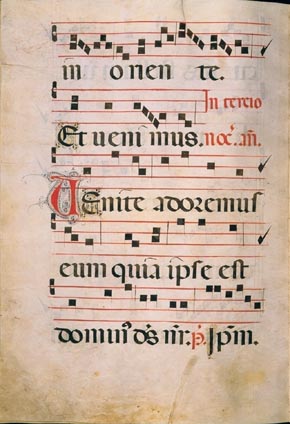 in onen te.
In tercio
Et uenimus. noc̃. añ.
VEnite adoremus
eum quia ipse est
dominꝰ ds̃ nr̃. p̃. Ipm̃.